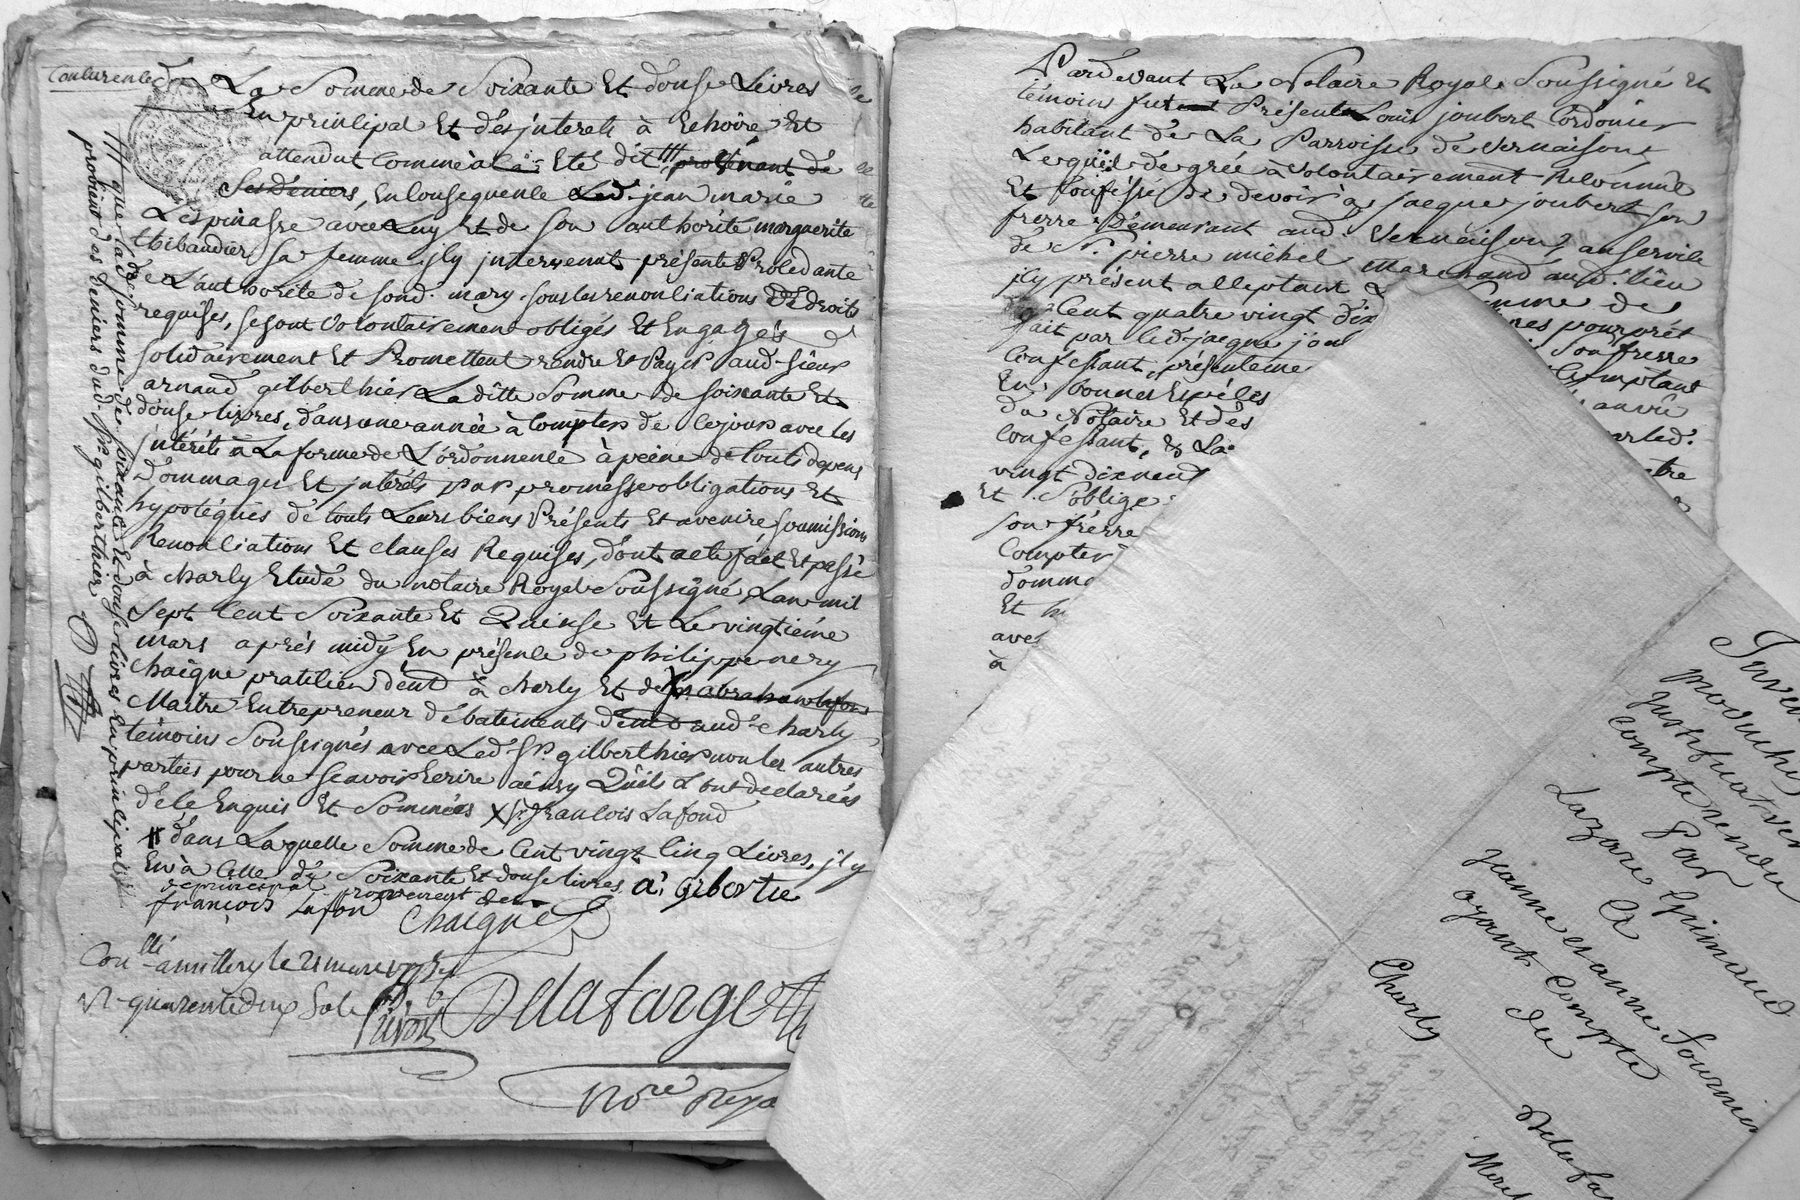 La Somme de Soixante Et douse Livres
En principal Et des jnterets à Echoire Et
attendut Comme a la Eté dit provenant de
Ses Deniers, En Consequence Led. jean marie
Lespinasse avec Luy Et de Son authorité marguerite
thibaudier Sa femme jly jntervenant présente Procedante
de L'authorité de Sond. mary sous les renonciations De droits
requises, se sont volontairement obligés Et Engagés
solidairement Et Promettent rendre Et Payer aud. sieur
arnaud gilberthier La ditte Somme de soixante Et
douse livres, dans une année à Compter de ce jour avec les
jntérêts à La forme de L'ordonnence à peine de touts depens
Dommages Et jntérêts par promesse obligations Et
hypotéques de touts Leurs biens Présents Et avenire soumissions
Renonciations Et clauses Requises, dont acte fait Et passé
à charly Etude du notaire Royal Soussigné, Lan mil
Sept Cent Soixante Et Quinse Et Le vingtiéme
mars aprés midy En présence de philippe nery
Chaigne praticien demt à charly Et de
Maitre Entrepreneur de batiments demt aud. charly
témoins Soussignés avec Led. Sr. gilberthier non les autres
parties pour ne sçavoir Ecrire ainsy Quils Lont declarées
de ce Enquis Et Sommées X Sr. francois Lafond
dans Laquelle Somme de Cent vingt Cinq Livres, jl y
En à Celle de Soixante Et douse livres
de principal provenant de
a: giberties
françois Laffon
Chaigne
Conllé a millery le 21 mars
R quarente deux Sols
Delafarge
Nore Roya
que lad. somme de soixante Et douse livres En principal
provient des deniers dud. Sr. gilberthier
Pardevant Le Notaire Royal Soussigné Et
témoins fut Présent Louis joubert Cordonier
habitant de La Parroisse de vernaison
Lequel de gré à volontairement Reconnu
Et Confesse de devoir à jacque joubert son
frerre Demeurant aud. Vernaison, au service
de Sr. pierre michel Marchand aud. lieu
jly présent acceptant
Cent quatre vingt dix
pour prêt
fait par led. jacque jou
son frerre
Confessant, présenteme
Comptant
En bonnes Espèces
du Notaire Et des
Confessant, & La
vingt dix neuf
Et S'oblige
son frerre
Compter
domma
Et h
avec
à
Inven
produites
justificatives
Compte rendu
Par
Lazare Grimaud
A
jeanne et anne fournier
ayant Compte
de
Charly
Delafa